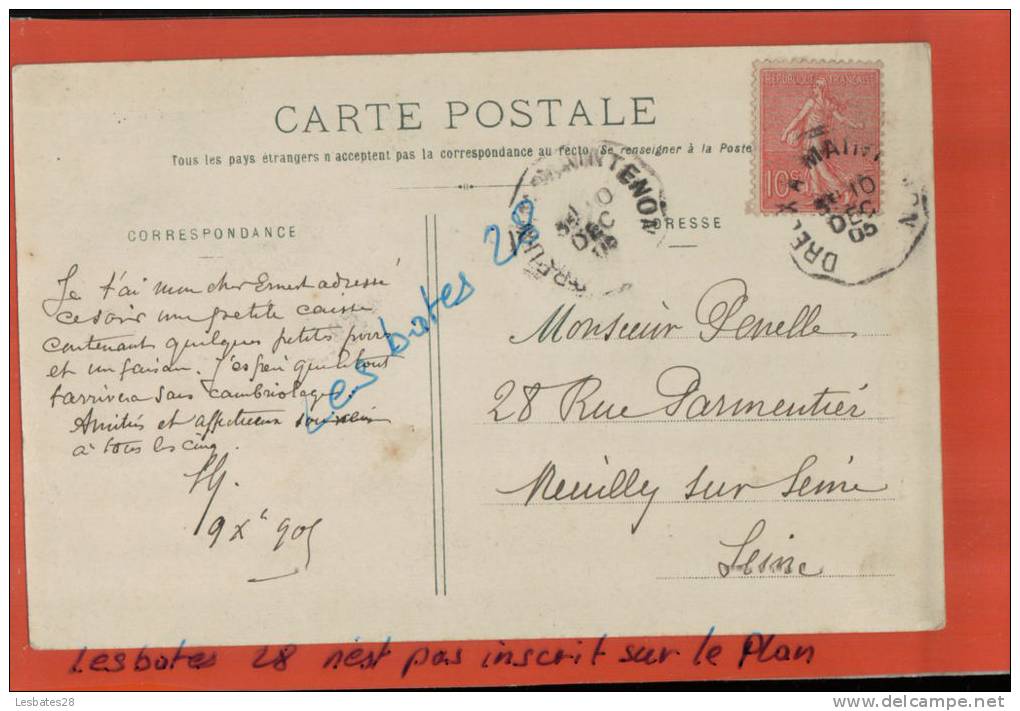 CARTE POSTALE
Tous les pays étrangers n'acceptent pas la correspondance au recto. Se renseigner à la Poste
RÉPUBLIQUE FRANÇAISE
10
MAINTENON
10
DEC
05
DREUX A MAINTENON
10
DEC
05
CORRESPONDANCE
ADRESSE
Je t'ai mon cher Ernest adressé
ce soir une petite caisse
contenant quelques petits
et un faisan. J'espère que le tout
t'arrivera sans cambriolage
Amitiés et affectueux
à tous les cinq.
9 Xbre 905
Les bates 28
Monsieur
28 Rue Parmentier
Neuilly sur Seine
Seine
Les bates 28 n'est pas inscrit sur le Plan
Lesbates28
www.delcampe.net